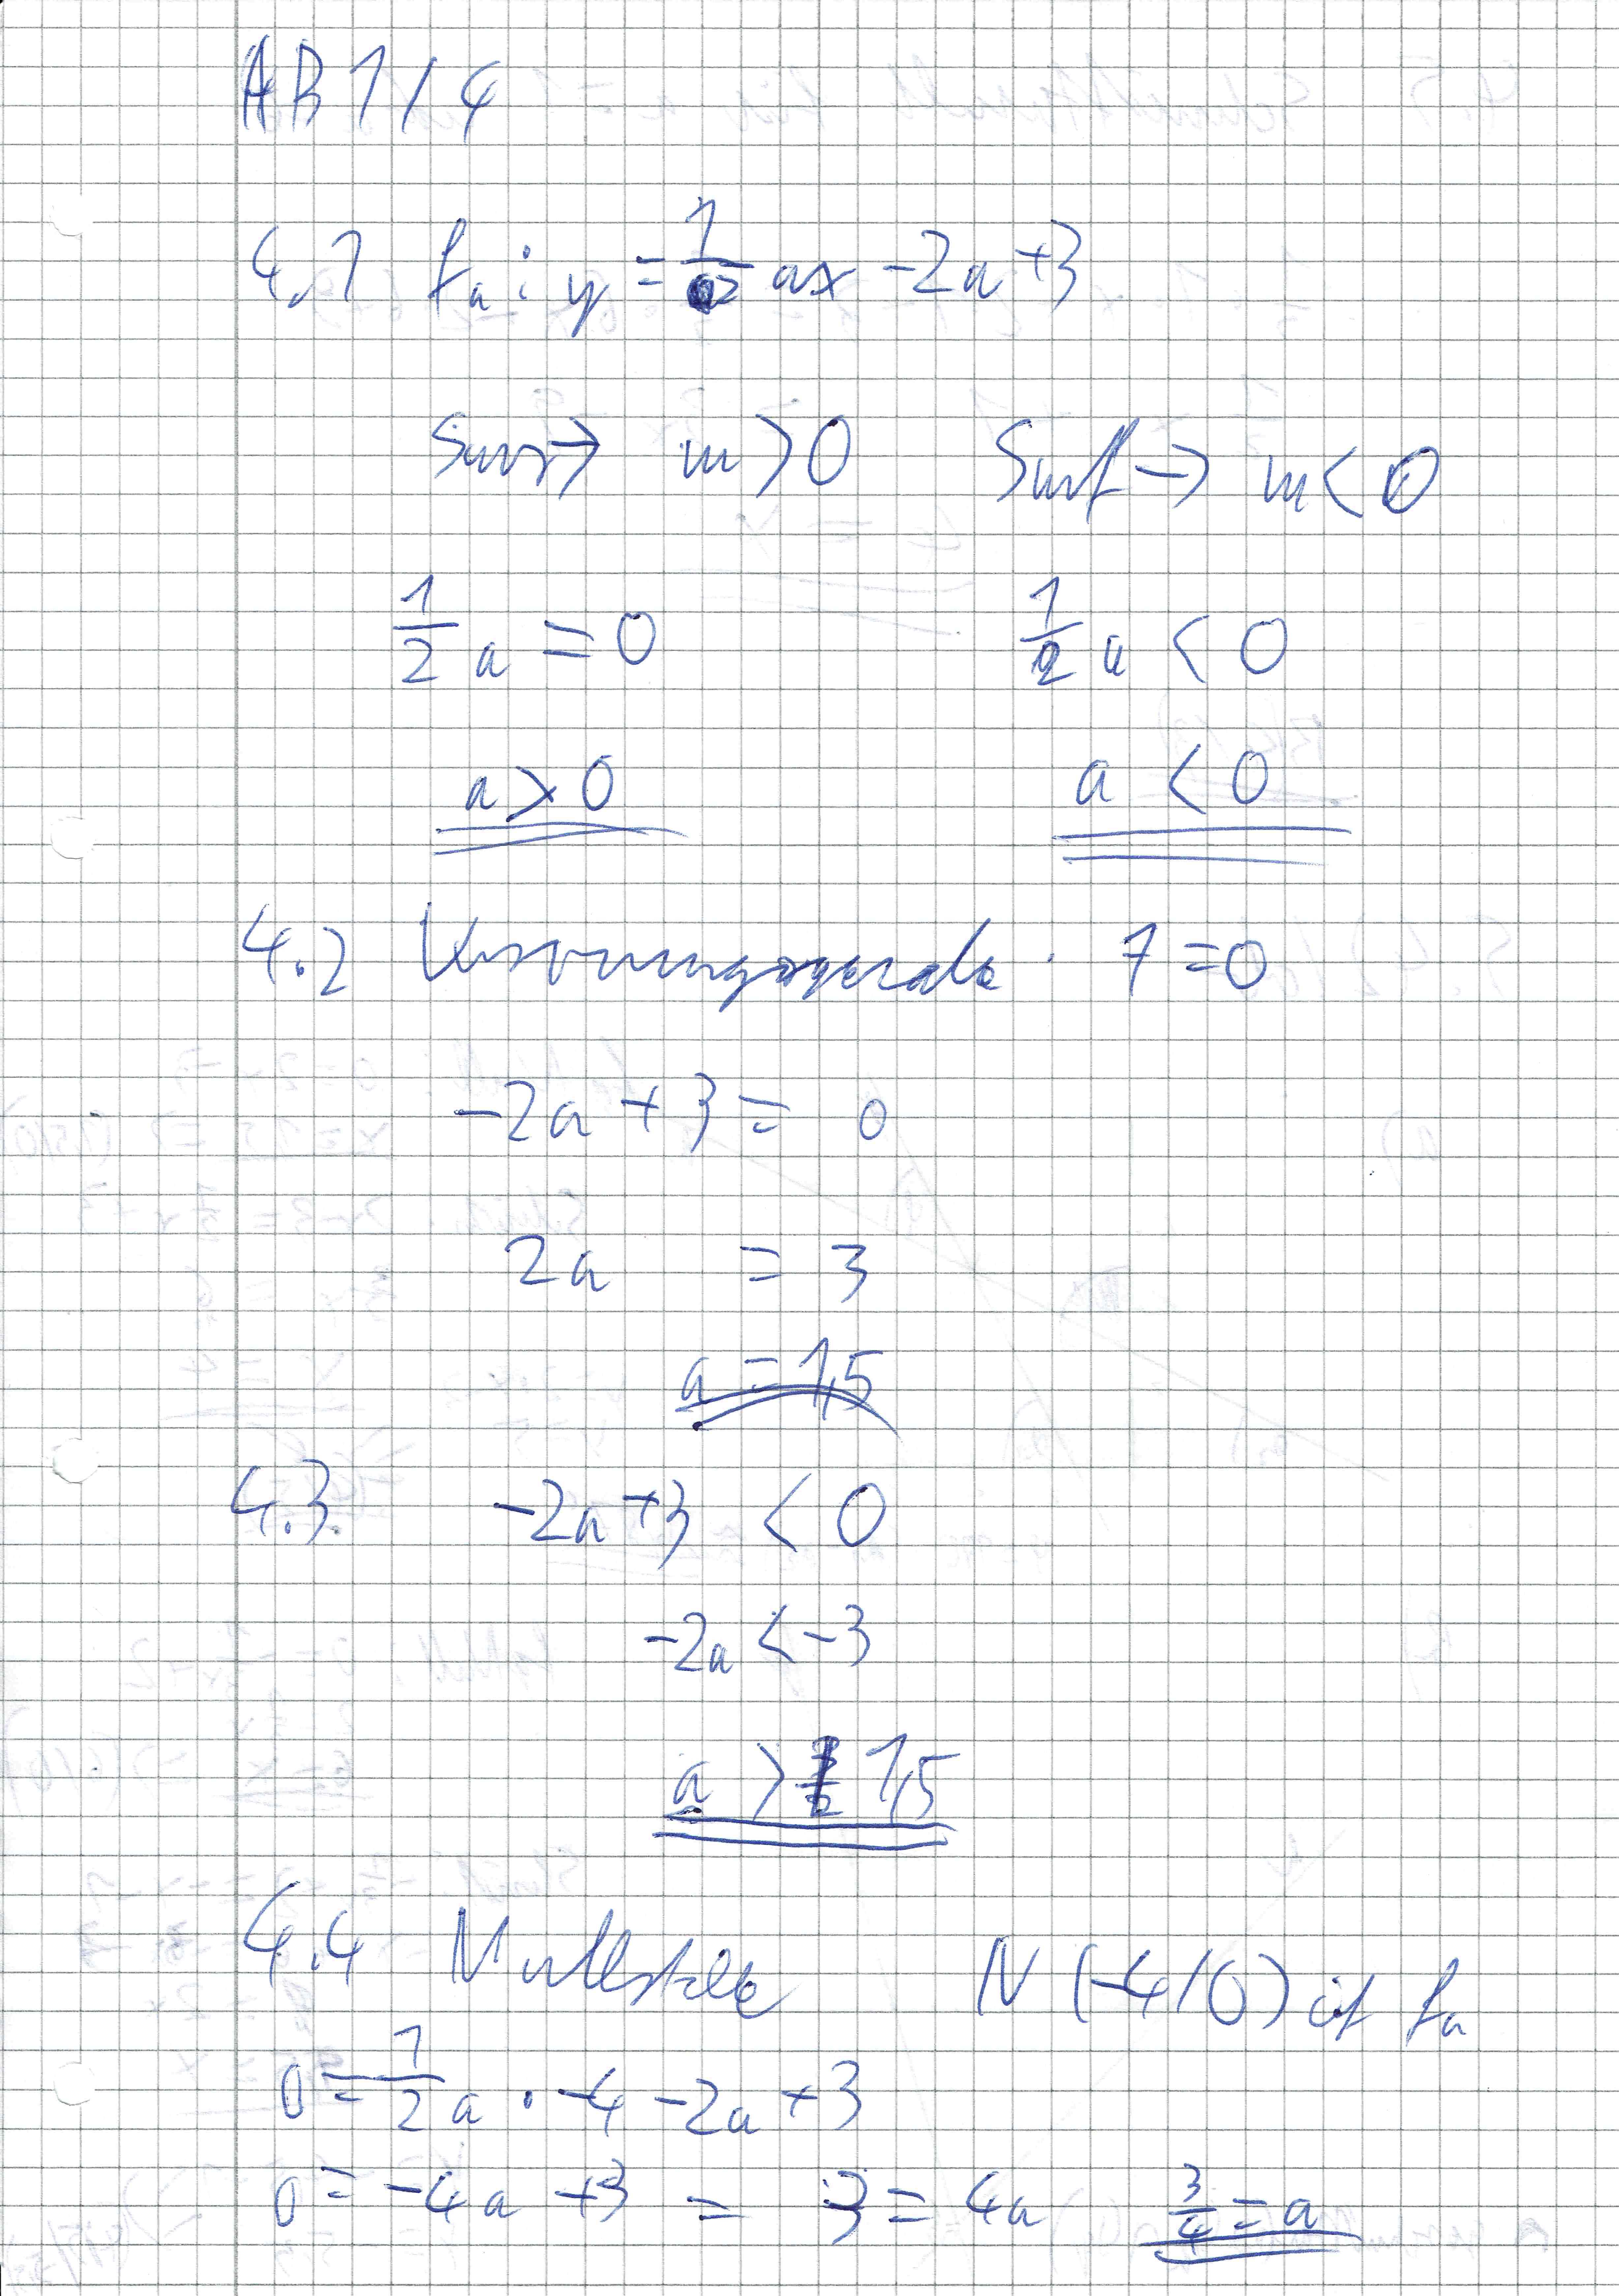 AB 1/4
4.1 fa: y = 1/2 ax - 2a + 3
m > 0 m < 0
1/2 a = 0 1/2 a < 0
a > 0 a < 0
4.2 = 0
-2a + 3 = 0
2a = 3
a = 1,5
4.3. -2a + 3 < 0
-2a < -3
a > 1,5
4.4 Nullstelle N (-4/0) fa
0 = 1/2 a · -4 - 2a + 3
0 = -4a + 3 = 3 = 4a 3/4 = a